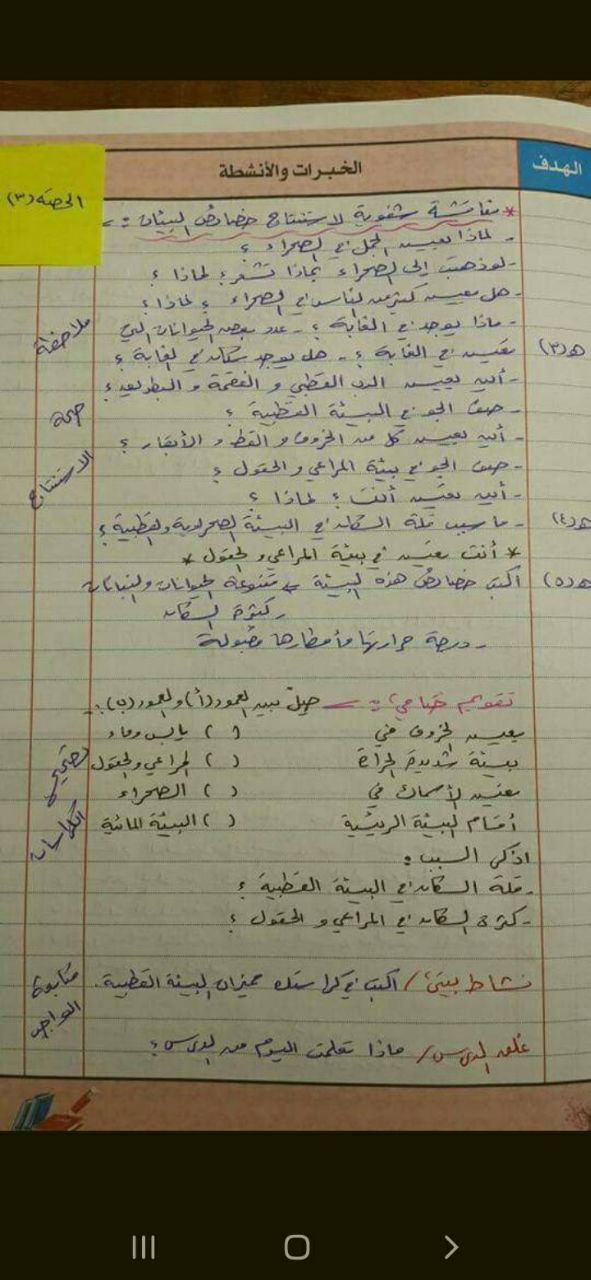 الهدف
الخبرات والأنشطة
الحصة (٣)
* مناقشة شفوية لاستنتاج خصائص البيئات :-
- لماذا يعيش الجمل في الصحراء ؟
- لو ذهبت إلى الصحراء بماذا تشعر ؟ لماذا ؟
- هل يعيش كثير من الناس في الصحراء ؟ لماذا ؟
- ماذا يوجد في الغابة ؟ - عدد بعض الحيوانات التي
ملاحظة
هـ (٣)
تعيش في الغابة ؟ - هل يوجد سكان في الغابة ؟
- أين يعيش الدب القطبي و الفقمة و البطريق ؟
- صف الجو في البيئة القطبية ؟
صحة
- أين يعيش كل من الخروف و القط و الأبقار ؟
- صف الجو في بيئة المراعي والحقول ؟
الاستنتاج
- أين تعيش أنت ؟ لماذا ؟
هـ (٤)
- ما سبب قلة السكان في البيئة الصحراوية والقطبية ؟
* أنت تعيش في بيئة المراعي والحقول *
هـ (٥)
اكتب خصائص هذه البيئة متنوعة الحيوانات والنباتات
- كثيرة السكان
- درجة حرارتها وأمطارها مقبولة
تقويم ختامي :- صل بين العمود (أ) والعمود (ب) :-
يعيش الخروف في ( ) يابس وماء
بيئة شديدة الحرارة ( ) المراعي والحقول
تعيش الأسماك في ( ) الصحراء
أقسام البيئة الرئيسية ( ) البيئة المائية
تصحيح الكراسات
اذكر السبب :
- قلة السكان في البيئة القطبية ؟
- كثرة السكان في المراعي و الحقول ؟
نشاط بيتي / اكتب في كراستك مميزات البيئة القطبية .
كتابة الواجب
غلق الدرس / ماذا تعلمت اليوم من الدرس ؟